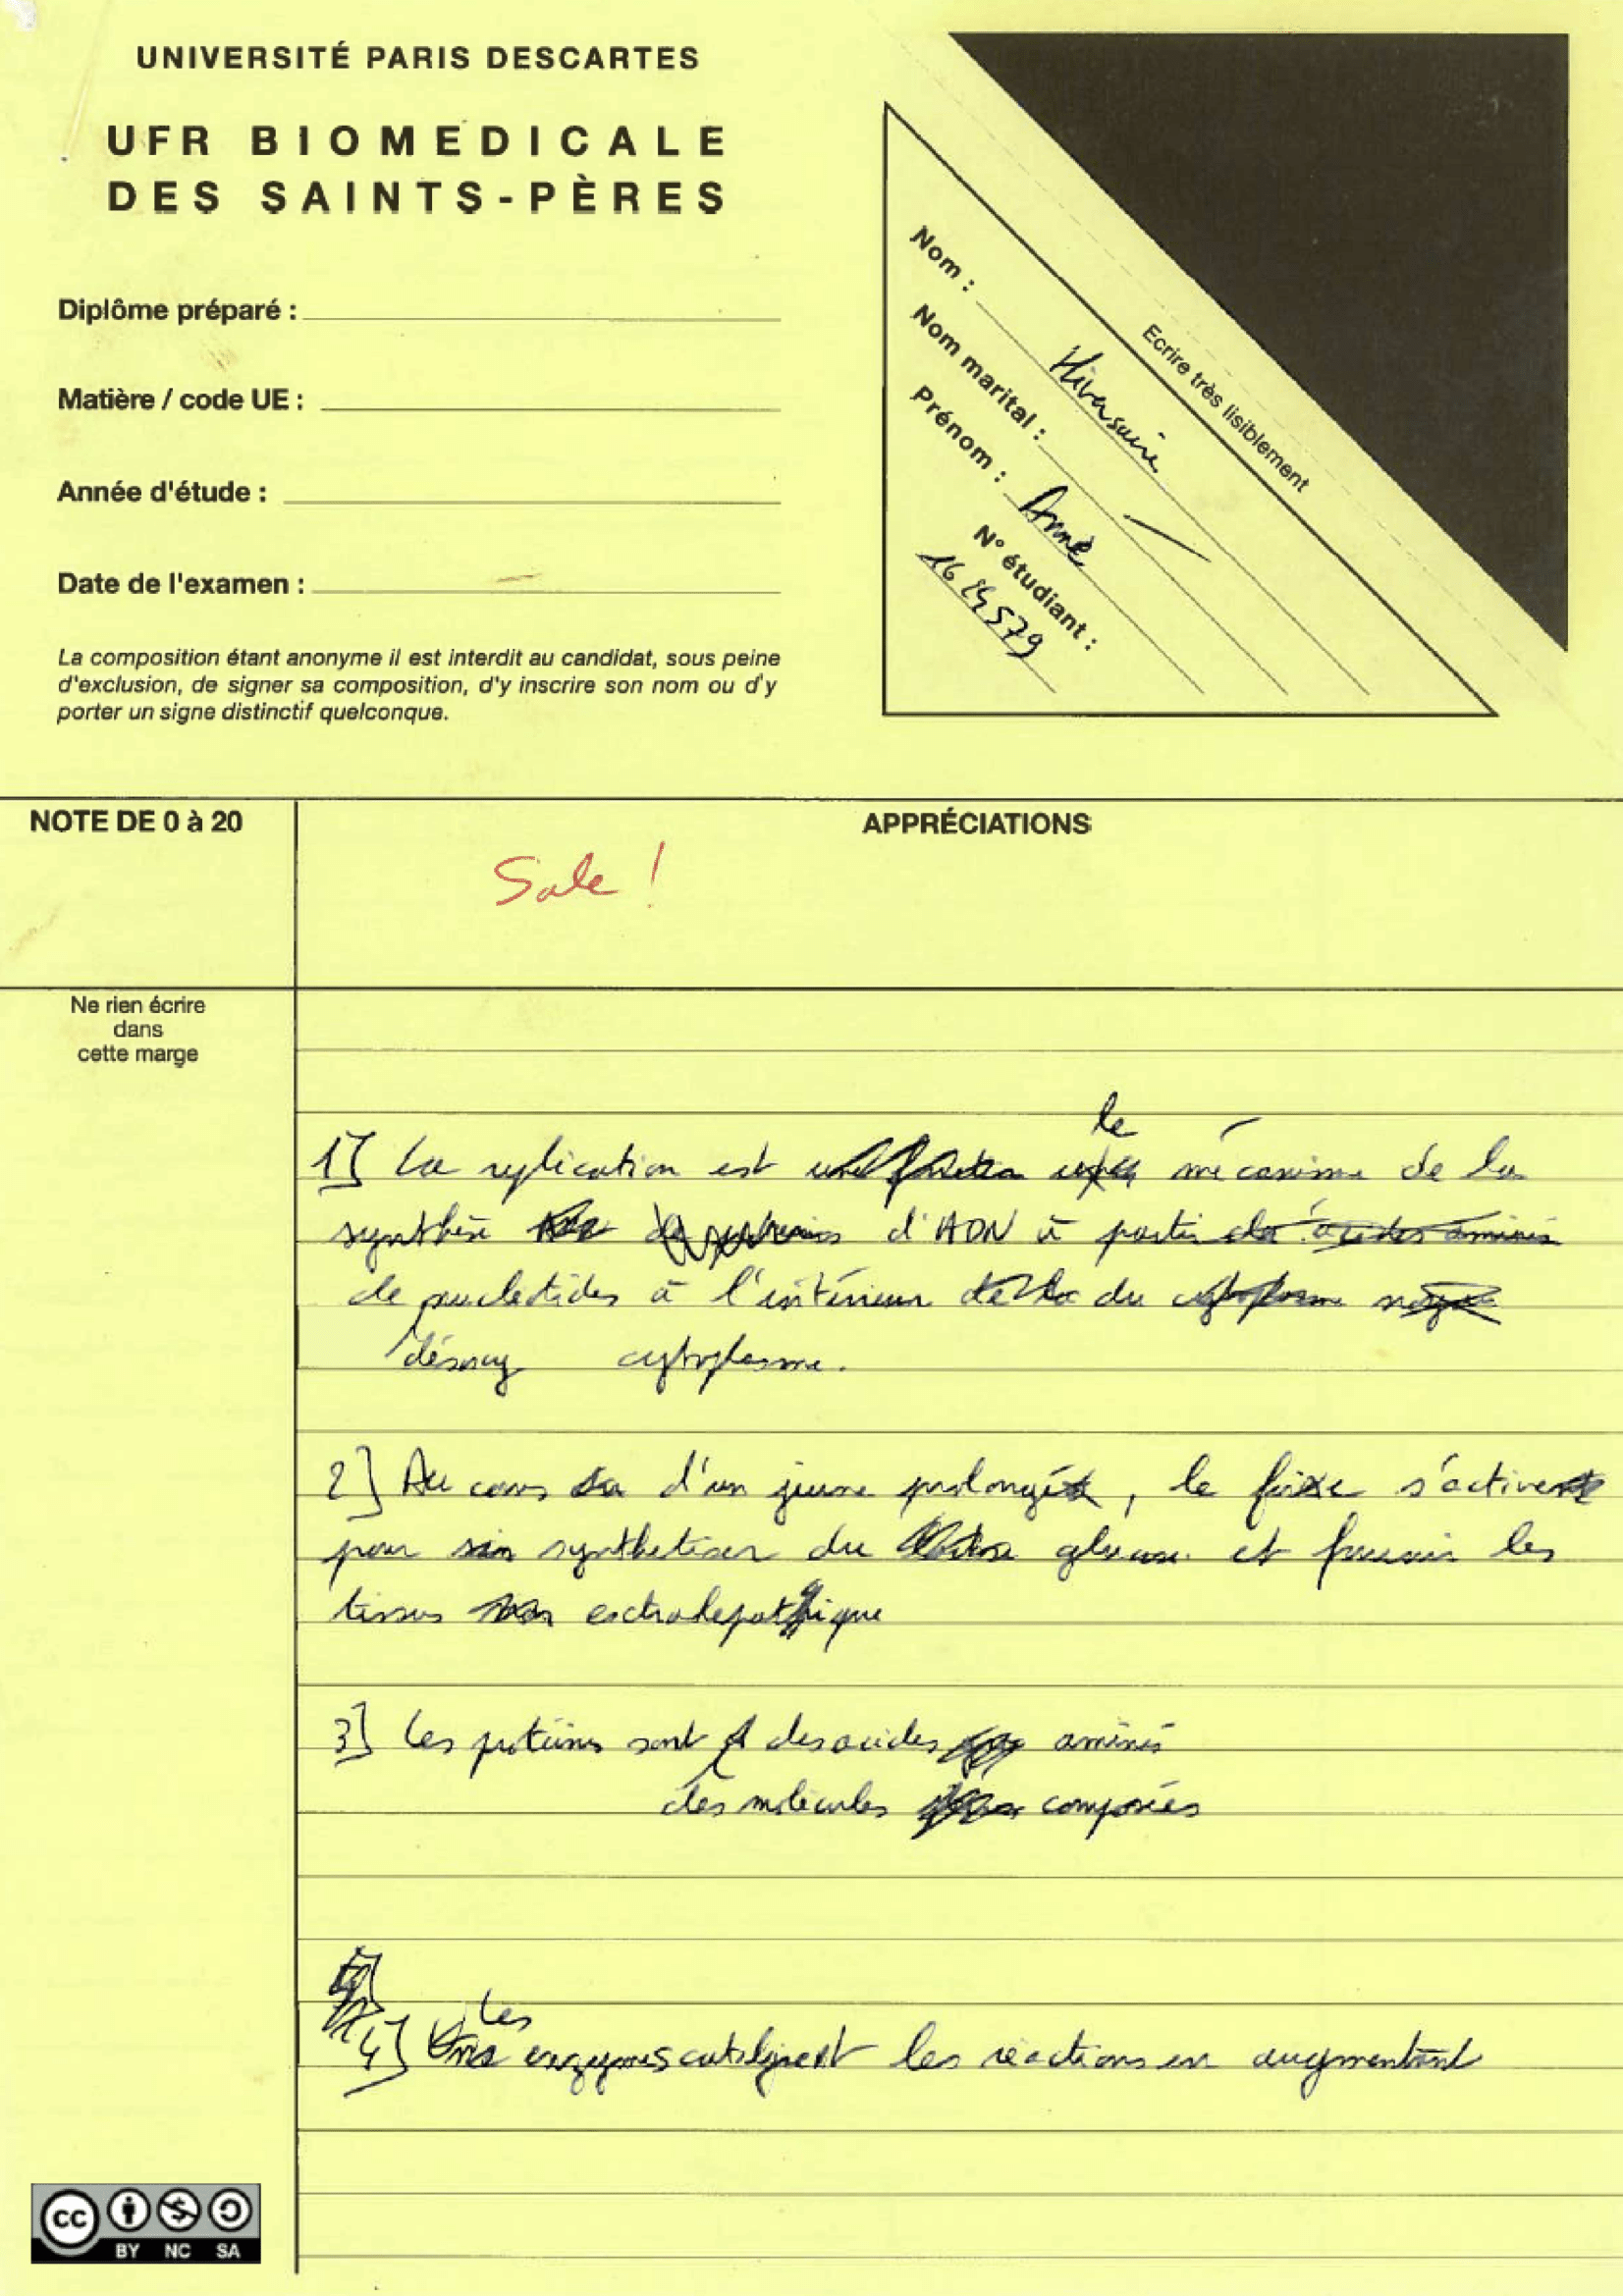 UNIVERSITÉ PARIS DESCARTES
UFR BIOMEDICALE
DES SAINTS-PÈRES
Diplôme préparé :
Matière / code UE :
Année d'étude :
Date de l'examen :
La composition étant anonyme il est interdit au candidat, sous peine
d'exclusion, de signer sa composition, d'y inscrire son nom ou d'y
porter un signe distinctif quelconque.
Ecrire très lisiblement
Nom : Hiversaire
Nom marital : —
Prénom : Anne
N° étudiant :
NOTE DE 0 à 20
APPRÉCIATIONS
Sale !
Ne rien écrire
dans
cette marge
le
1] La replication est mécanisme de la
synthèse d'ADN à partir des acides aminés
de nucleotides à l'intérieur de la du cytoplasme
désoxy cytoplasme.
2] Au cours d'un jeune prolongé, le foie s'active
pour synthetiser du glucose et fournir les
tissus extrahepatique
3] Les proteines sont des acides aminés
des molécules composées
Les
4] enzymes catalysent les réactions en augmentant
CC BY NC SA